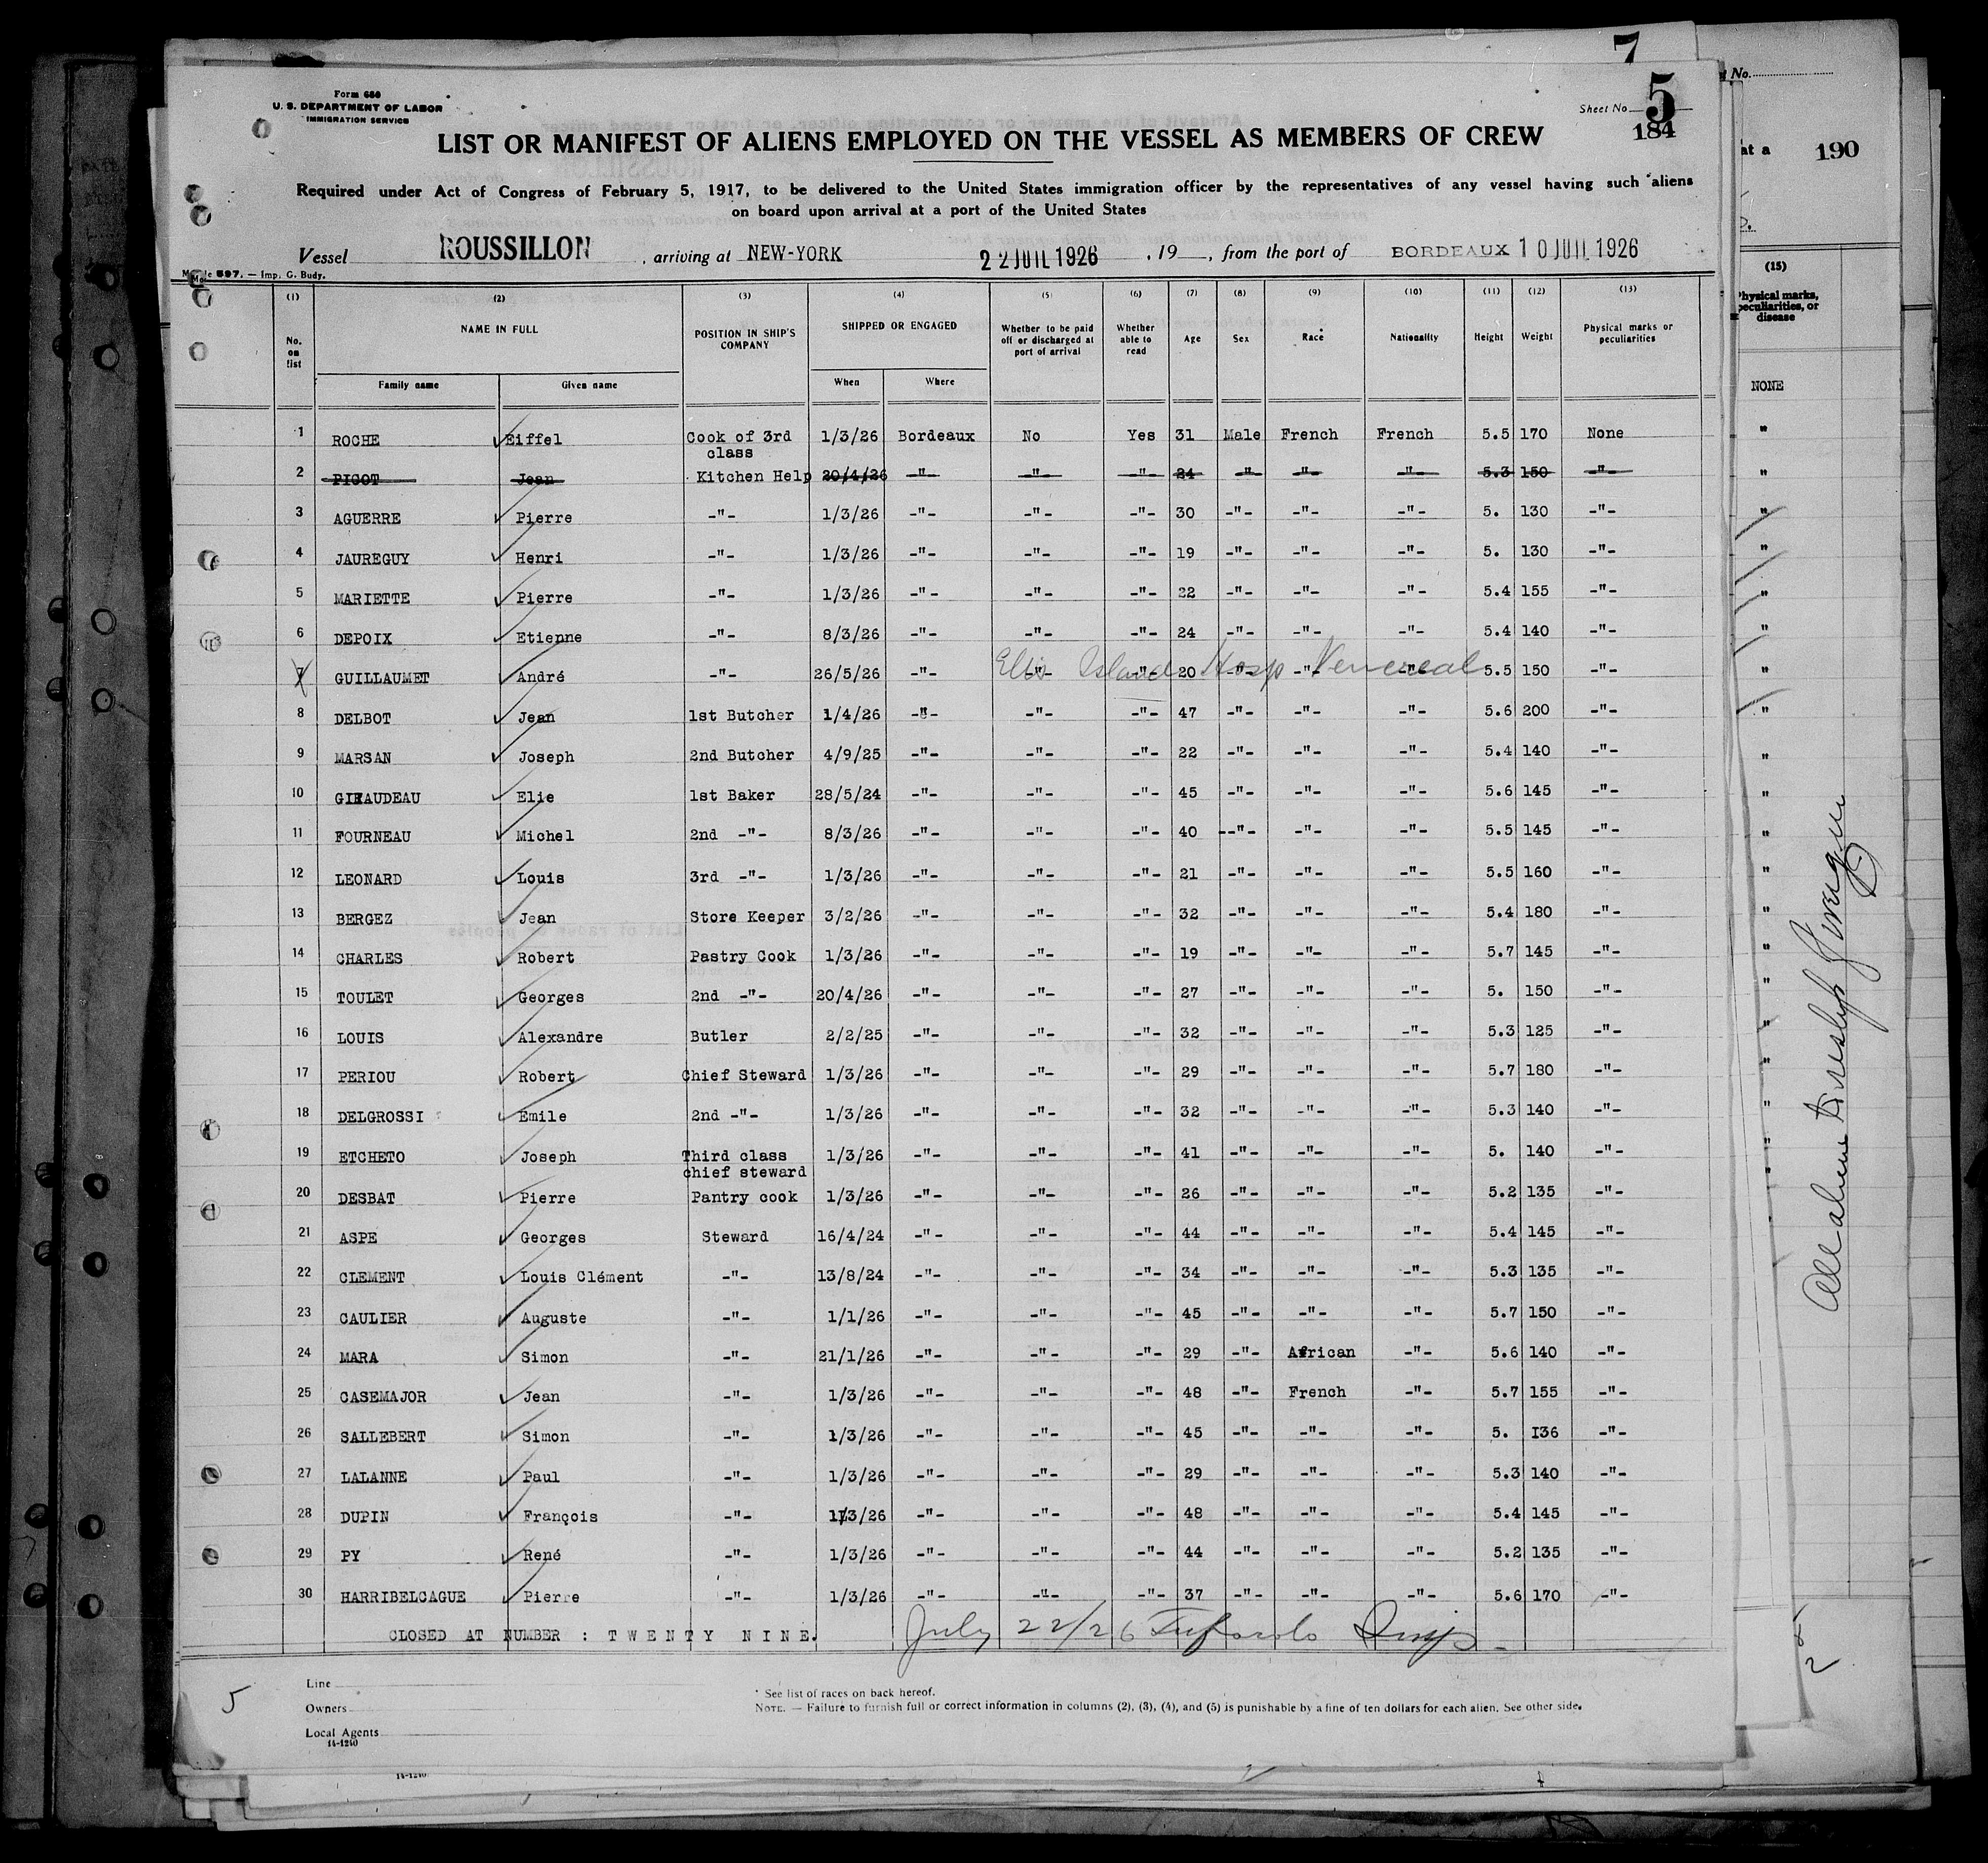 7
Form 680
U. S. DEPARTMENT OF LABOR
IMMIGRATION SERVICE
Sheet No. 5
184
LIST OR MANIFEST OF ALIENS EMPLOYED ON THE VESSEL AS MEMBERS OF CREW
Required under Act of Congress of February 5, 1917, to be delivered to the United States immigration officer by the representatives of any vessel having such aliens
on board upon arrival at a port of the United States
Vessel ROUSSILLON, arriving at NEW-YORK 22 JUIL 1926, 19, from the port of BORDEAUX 10 JUIL 1926
597. — Imp. G. Budy.
(1) (2) (3) (4) (5) (6) (7) (8) (9) (10) (11) (12) (13)
No. on list NAME IN FULL POSITION IN SHIP'S COMPANY SHIPPED OR ENGAGED Whether to be paid off or discharged at port of arrival Whether able to read Age Sex Race Nationality Height Weight Physical marks or peculiarities
Family name Given name When Where
1 ROCHE Eiffel Cook of 3rd class 1/3/26 Bordeaux No Yes 31 Male French French 5.5 170 None
2 PIGOT Jean Kitchen Help 20/4/26 -"- -"- -"- 24 -"- -"- -"- 5.3 150 -"-
3 AGUERRE Pierre -"- 1/3/26 -"- -"- -"- 30 -"- -"- -"- 5. 130 -"-
4 JAUREGUY Henri -"- 1/3/26 -"- -"- -"- 19 -"- -"- -"- 5. 130 -"-
5 MARIETTE Pierre -"- 1/3/26 -"- -"- -"- 22 -"- -"- -"- 5.4 155 -"-
6 DEPOIX Etienne -"- 8/3/26 -"- -"- -"- 24 -"- -"- -"- 5.4 140 -"-
Ellis Island Hosp Venereal
7 GUILLAUMET André -"- 26/5/26 -"- -"- -"- 20 -"- -"- -"- 5.5 150 -"-
8 DELBOT Jean 1st Butcher 1/4/26 -"- -"- -"- 47 -"- -"- -"- 5.6 200 -"-
9 MARSAN Joseph 2nd Butcher 4/9/25 -"- -"- -"- 22 -"- -"- -"- 5.4 140 -"-
10 GIRAUDEAU Elie 1st Baker 28/5/24 -"- -"- -"- 45 -"- -"- -"- 5.6 145 -"-
11 FOURNEAU Michel 2nd -"- 8/3/26 -"- -"- -"- 40 --"- -"- -"- 5.5 145 -"-
12 LEONARD Louis 3rd -"- 1/3/26 -"- -"- -"- 21 -"- -"- -"- 5.5 160 -"-
13 BERGEZ Jean Store Keeper 3/2/26 -"- -"- -"- 32 -"- -"- -"- 5.4 180 -"-
14 CHARLES Robert Pastry Cook 1/3/26 -"- -"- -"- 19 -"- -"- -"- 5.7 145 -"-
15 TOULET Georges 2nd -"- 20/4/26 -"- -"- -"- 27 -"- -"- -"- 5. 150 -"-
16 LOUIS Alexandre Butler 2/2/25 -"- -"- -"- 32 -"- -"- -"- 5.3 125 -"-
17 PERIOU Robert Chief Steward 1/3/26 -"- -"- -"- 29 -"- -"- -"- 5.7 180 -"-
18 DELGROSSI Emile 2nd -"- 1/3/26 -"- -"- -"- 32 -"- -"- -"- 5.3 140 -"-
19 ETCHETO Joseph Third class chief steward 1/3/26 -"- -"- -"- 41 -"- -"- -"- 5. 140 -"-
20 DESBAT Pierre Pantry cook 1/3/26 -"- -"- -"- 26 -"- -"- -"- 5.2 135 -"-
21 ASPE Georges Steward 16/4/24 -"- -"- -"- 44 -"- -"- -"- 5.4 145 -"-
22 CLEMENT Louis Clément -"- 13/8/24 -"- -"- -"- 34 -"- -"- -"- 5.3 135 -"-
23 CAULIER Auguste -"- 1/1/26 -"- -"- -"- 45 -"- -"- -"- 5.7 150 -"-
24 MARA Simon -"- 21/1/26 -"- -"- -"- 29 -"- African -"- 5.6 140 -"-
25 CASEMAJOR Jean -"- 1/3/26 -"- -"- -"- 48 -"- French -"- 5.7 155 -"-
26 SALLEBERT Simon -"- 1/3/26 -"- -"- -"- 45 -"- -"- -"- 5. I36 -"-
27 LALANNE Paul -"- 1/3/26 -"- -"- -"- 29 -"- -"- -"- 5.3 140 -"-
28 DUPIN François -"- 1/3/26 -"- -"- -"- 48 -"- -"- -"- 5.4 145 -"-
29 PY René -"- 1/3/26 -"- -"- -"- 44 -"- -"- -"- 5.2 135 -"-
30 HARRIBELCAGUE Pierre -"- 1/3/26 -"- -"- -"- 37 -"- -"- -"- 5.6 170 -"-
CLOSED AT NUMBER : TWENTY NINE. July 22/26 Insp.
5
Line
Owners
Local Agents
14-1240
* See list of races on back hereof.
NOTE. — Failure to furnish full or correct information in columns (2), (3), (4), and (5) is punishable by a fine of ten dollars for each alien. See other side.
14-1240
No.
at a 190
(15)
Physical marks, peculiarities, or disease
NONE
All aliens
2